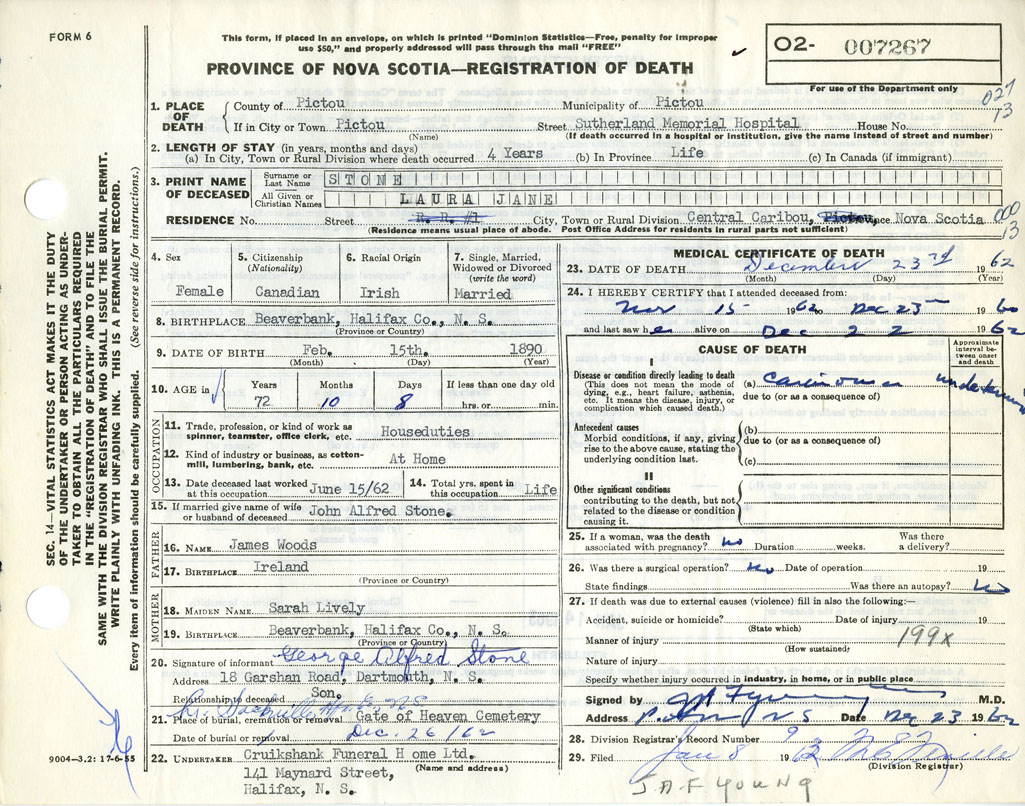 FORM 6
This form, if placed in an envelope, on which is printed "Dominion Statistics—Free, penalty for improper
use $50," and properly addressed will pass through the mail "FREE"
PROVINCE OF NOVA SCOTIA—REGISTRATION OF DEATH
O2- 007267
For use of the Department only
027
13
SEC. 14—VITAL STATISTICS ACT MAKES IT THE DUTY
OF THE UNDERTAKER OR PERSON ACTING AS UNDER-
TAKER TO OBTAIN ALL THE PARTICULARS REQUIRED
IN THE "REGISTRATION OF DEATH" AND TO FILE THE
SAME WITH THE DIVISION REGISTRAR WHO SHALL ISSUE THE BURIAL PERMIT.
WRITE PLAINLY WITH UNFADING INK. THIS IS A PERMANENT RECORD.
Every item of information should be carefully supplied. (See reverse side for instructions.)
1. PLACE OF DEATH
County of Pictou Municipality of Pictou
If in City or Town Pictou Street Sutherland Memorial Hospital House No.
(Name) (If death occurred in a hospital or institution, give the name instead of street and number)
2. LENGTH OF STAY (in years, months and days)
(a) In City, Town or Rural Division where death occurred 4 Years (b) In Province Life (c) In Canada (if immigrant)
3. PRINT NAME OF DECEASED
Surname or Last Name STONE
All Given or Christian Names LAURA JANE
RESIDENCE No. Street R. R. #1 City, Town or Rural Division Central Caribou, Pictou, Province Nova Scotia
000
13
(Residence means usual place of abode. Post Office Address for residents in rural parts not sufficient)
4. Sex
Female
5. Citizenship
(Nationality)
Canadian
6. Racial Origin
Irish
7. Single, Married,
Widowed or Divorced
(write the word)
Married
8. BIRTHPLACE Beaverbank, Halifax Co., N. S.
(Province or Country)
9. DATE OF BIRTH Feb. 15th. 1890
(Month) (Day) (Year)
10. AGE in
Years Months Days If less than one day old
72 10 8 hrs. or min.
OCCUPATION
11. Trade, profession, or kind of work as
spinner, teamster, office clerk, etc. Houseduties
12. Kind of industry or business, as cotton-
mill, lumbering, bank, etc. At Home
13. Date deceased last worked
at this occupation June 15/62
14. Total yrs. spent in
this occupation Life
15. If married give name of wife
or husband of deceased John Alfred Stone.
FATHER
16. NAME James Woods
17. BIRTHPLACE Ireland
(Province or Country)
MOTHER
18. MAIDEN NAME Sarah Lively
19. BIRTHPLACE Beaverbank, Halifax Co., N. S.
(Province or Country)
20. Signature of informant George Alfred Stone
Address 18 Garshan Road, Dartmouth, N. S.
Relationship to deceased Son.
21. Place of burial, cremation or removal Gate of Heaven Cemetery
Date of burial or removal Dec. 26/62
22. UNDERTAKER Cruikshank Funeral Home Ltd.
141 Maynard Street, (Name and address)
Halifax, N. S.
9004—3.2: 17-6-55
MEDICAL CERTIFICATE OF DEATH
23. DATE OF DEATH December 23rd 1962
(Month) (Day) (Year)
24. I HEREBY CERTIFY that I attended deceased from:
Nov 15 1962 to Dec 23 19
and last saw her alive on Dec 22 1962
CAUSE OF DEATH
Approximate interval be-
tween onset and death
I
Disease or condition directly leading to death
(This does not mean the mode of
dying, e.g., heart failure, asthenia,
etc. It means the disease, injury, or
complication which caused death.)
(a) Carcinoma
due to (or as a consequence of)
Antecedent causes
Morbid conditions, if any, giving
rise to the above cause, stating the
underlying condition last.
(b)
due to (or as a consequence of)
(c)
II
Other significant conditions
contributing to the death, but not
related to the disease or condition
causing it.
25. If a woman, was the death
associated with pregnancy? No Duration weeks. Was there
a delivery?
26. Was there a surgical operation? No Date of operation 19
State findings Was there an autopsy? No
27. If death was due to external causes (violence) fill in also the following:—
Accident, suicide or homicide? Date of injury 19
(State which)
Manner of injury 199x
(How sustained)
Nature of injury
Specify whether injury occurred in industry, in home, or in public place
Signed by M.D.
Address Pictou NS Date Dec 23 1962
28. Division Registrar's Record Number
29. Filed Jan 8 19
(Division Registrar)
J A F YOUNG